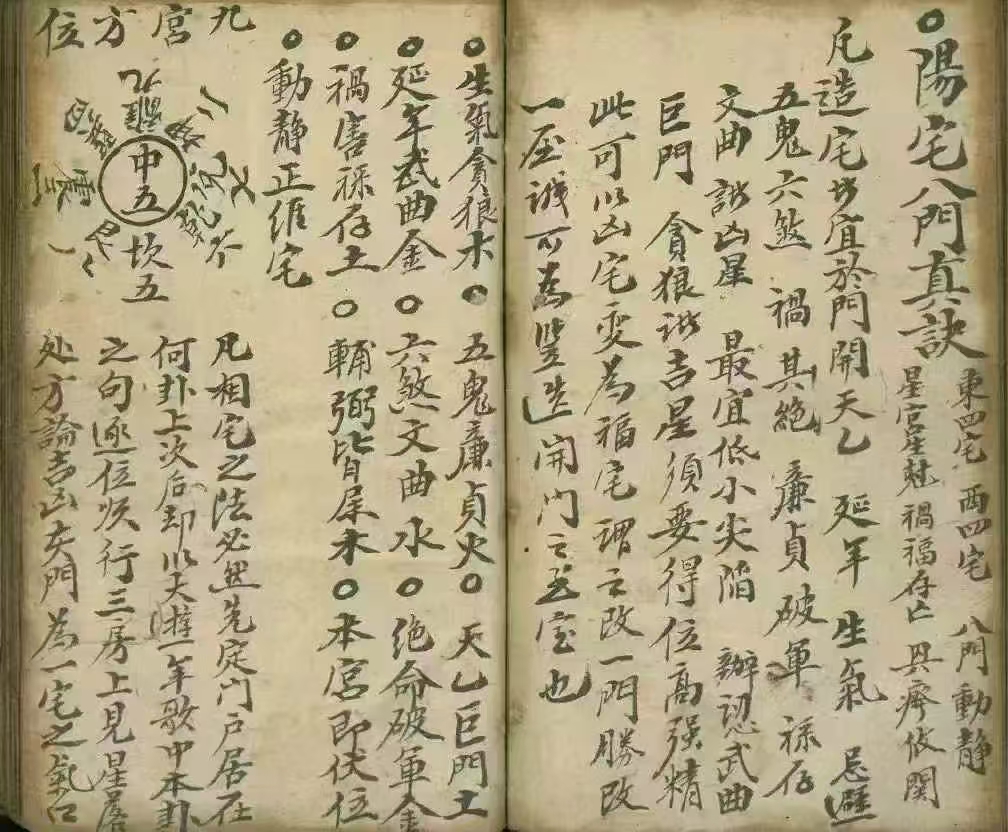 ○陽宅八門真訣
東四宅 西四宅 八門動靜
星宮生尅禍福存亡 具齊攸関
凡造宅 宜於門開天乙 延年 生氣 忌避
五鬼六煞 禍其絕 廉貞破軍 禄存
文曲 諸凶星 最宜低小尖陷 辦認武曲
巨門 貪狼諸吉星須要得位高强精
此可以凶宅变為福宅謂之改一門勝改
一屋誠可為竪造開门之至宝也
○生氣貪狼木○五鬼廉貞火○天乙巨門土
○延年武曲金○六煞文曲水○绝命破軍金
○禍害禄存土○輔弼皆屬木○本宮即伏位
○動靜正維宅
九宮方位
離九
中五
坎五
震三
凡相宅之法必然先定门户居在
何卦上次后却以天遊年歌中本卦
之句逐位順行三房上見星落
处方論吉凶夫門為一宅之氣口